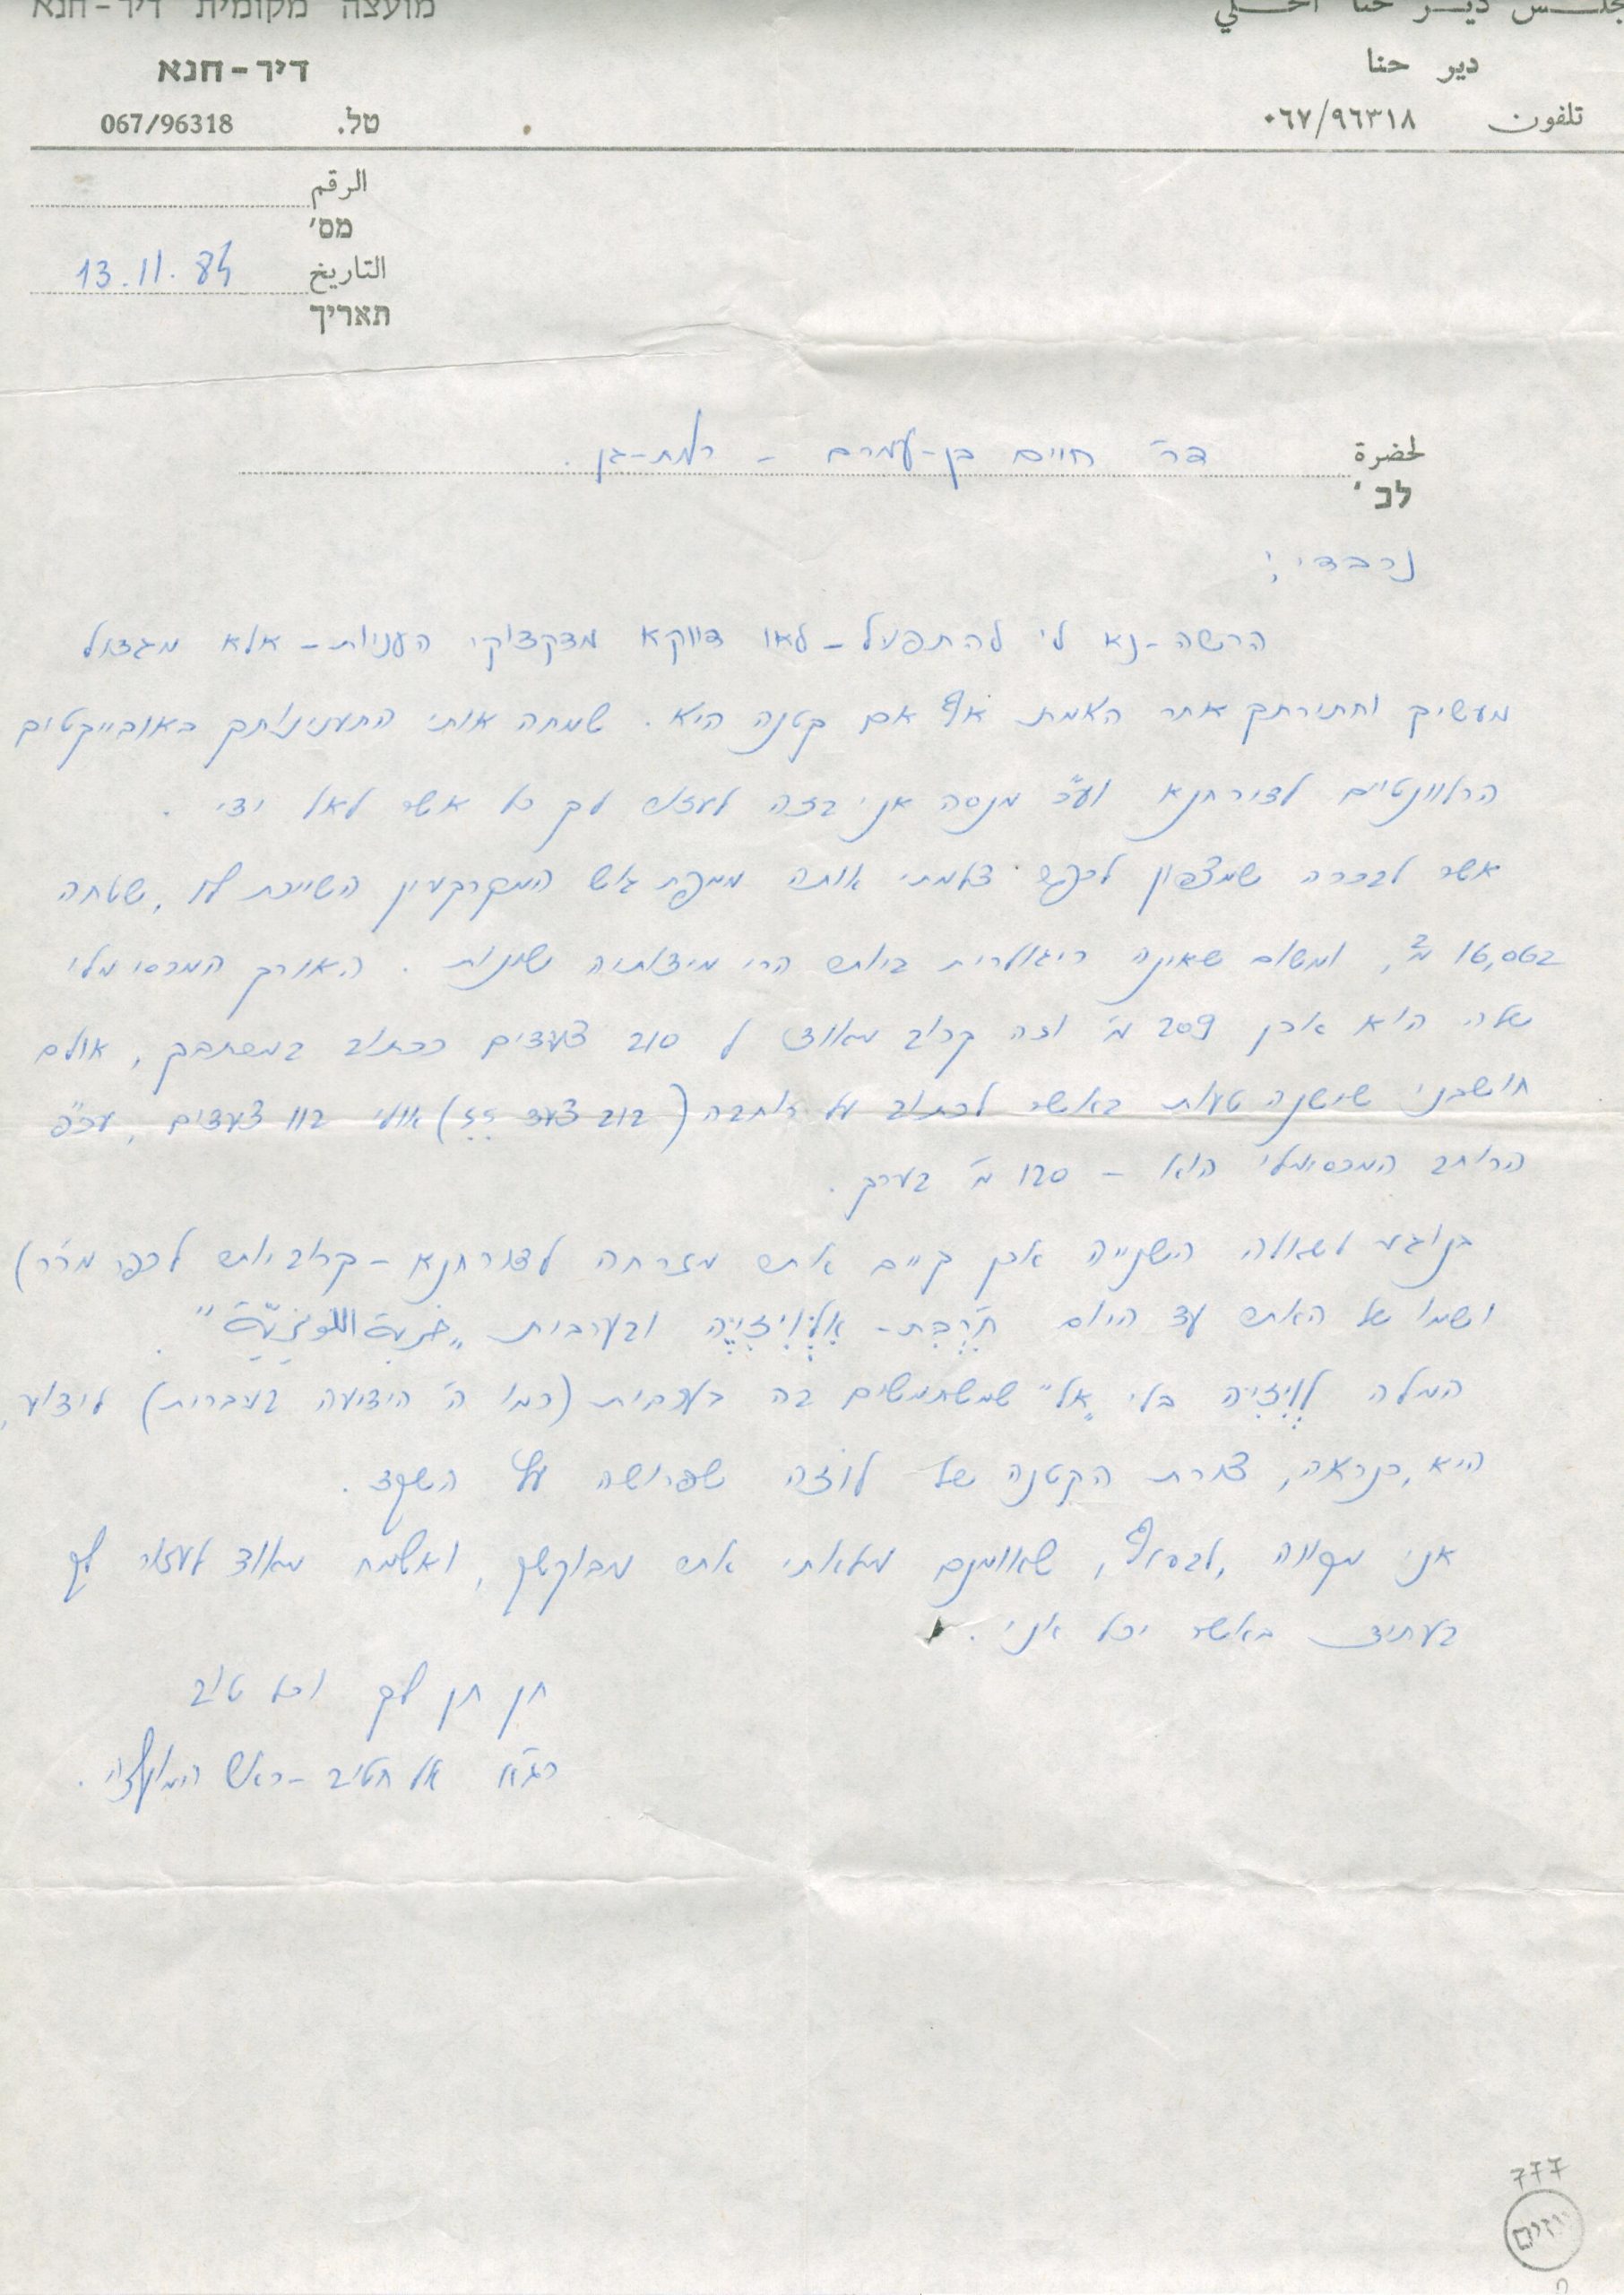 מועצה מקומית דיר-חנא
مجلس دير حنا المحلي
דיר-חנא
دير حنا
טל. 067/96318
تلفون ٠٦٧/٩٦٣١٨
الرقم
מס'
التاريخ 13.11.84
תאריך
لحضرة
לכ' דר' חיים בן-עמרם - רמת-גן.
נכבדי;
הרשה-נא לי להתפעל - לאו דווקא מדקדוקי העניות - אלא מגדול
מעשיך וחתירתך אחר האמת אף אם קטנה היא. שמחה אותי התענינותך באובייקטים
הרלוונטיים לדיר חנא וע"כ מנסה אני בזה לעזור לך כל אשר לאל ידי.
אשר לברכה שמצפון לכפר צלמתי אותה ממפת גוש המקרקעין השייכת לו, שטחה
כ 16,560 מ2, ומשום שאינה ריגולרית ביותר הרי מידותיה שונות. האורך המכסימלי
שלה הוא אכן 209 מ' וזה קרוב מאוד ל 210 צעדים ככתוב במכתבך, אולם
חושבני שישנה טעות באשר לכתוב על רוחבה (212 צעד ??) אולי 112 צעדים, עכ"פ
הרוחב המכסימלי הוא - 120 מ' בערך.
בנוגע לשאלה השנייה אכן קיים אתר מזרחה לדיר חנא - קרוב יותר לכפר מר'ר)
ושמו של האתר עד היום חִ'רְבִּת-אֶלְּוֵיזִיֶּה ובערבית "خربة اللويزيّة".
המלה לְוֵיזִיֶה בלי "אֶל" שמשתמשים בה בערבית (כמו ה' הידיעה בעברית) ליידוע,
היא, כנראה, צורת הקטנה של לוזה שפרושה עץ השקד.
אני מקווה, לבסוף, שאומנם מלאתי אחר מבוקשך, ואשמח מאוד לעזור לך
בעתיד באשר יכול אני.
חן חן לך וכל טוב
רג'א אל חטיב - ראש המועצה.
777